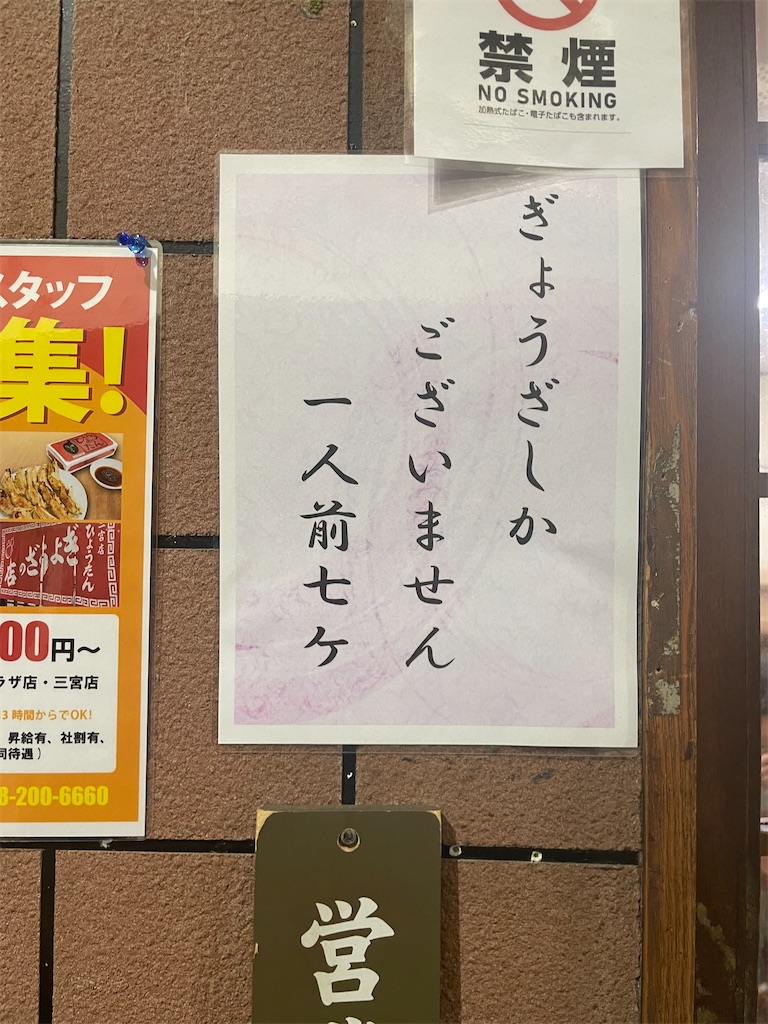 禁煙
NO SMOKING
加熱式たばこ・電子たばこも含まれます。
ぎょうざしか
ございません
一人前七ケ
スタッフ
集!
ぎょうざの店
ひょうたん
三宮店
00円～
ラザ店・三宮店
3時間からでOK!
昇給有、社割有、
同待遇)
8-200-6660
営